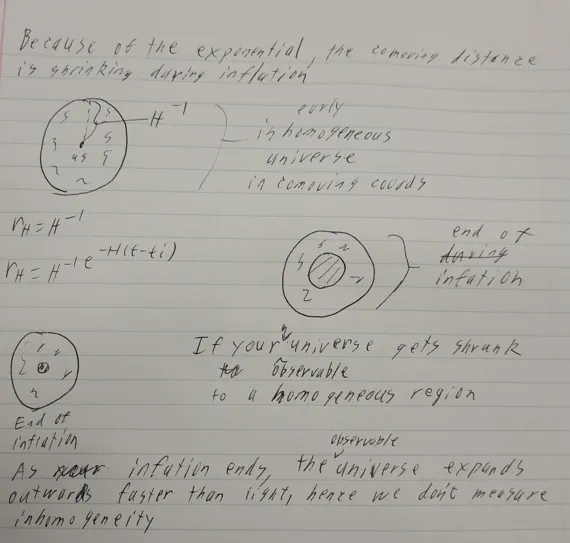 Because of the exponential, the comoving distance
is shrinking during inflation
H^-1
us
early
inhomogeneous
universe
in comoving coords
r_H = H^-1
r_H = H^-1 e^-H(t-ti)
end of
during
infation
If your universe gets shrunk
observable
to a homogeneous region
End of
inflation
observable
As infation ends, the universe expands
outwards faster than light, hence we don't measure
inhomogeneity